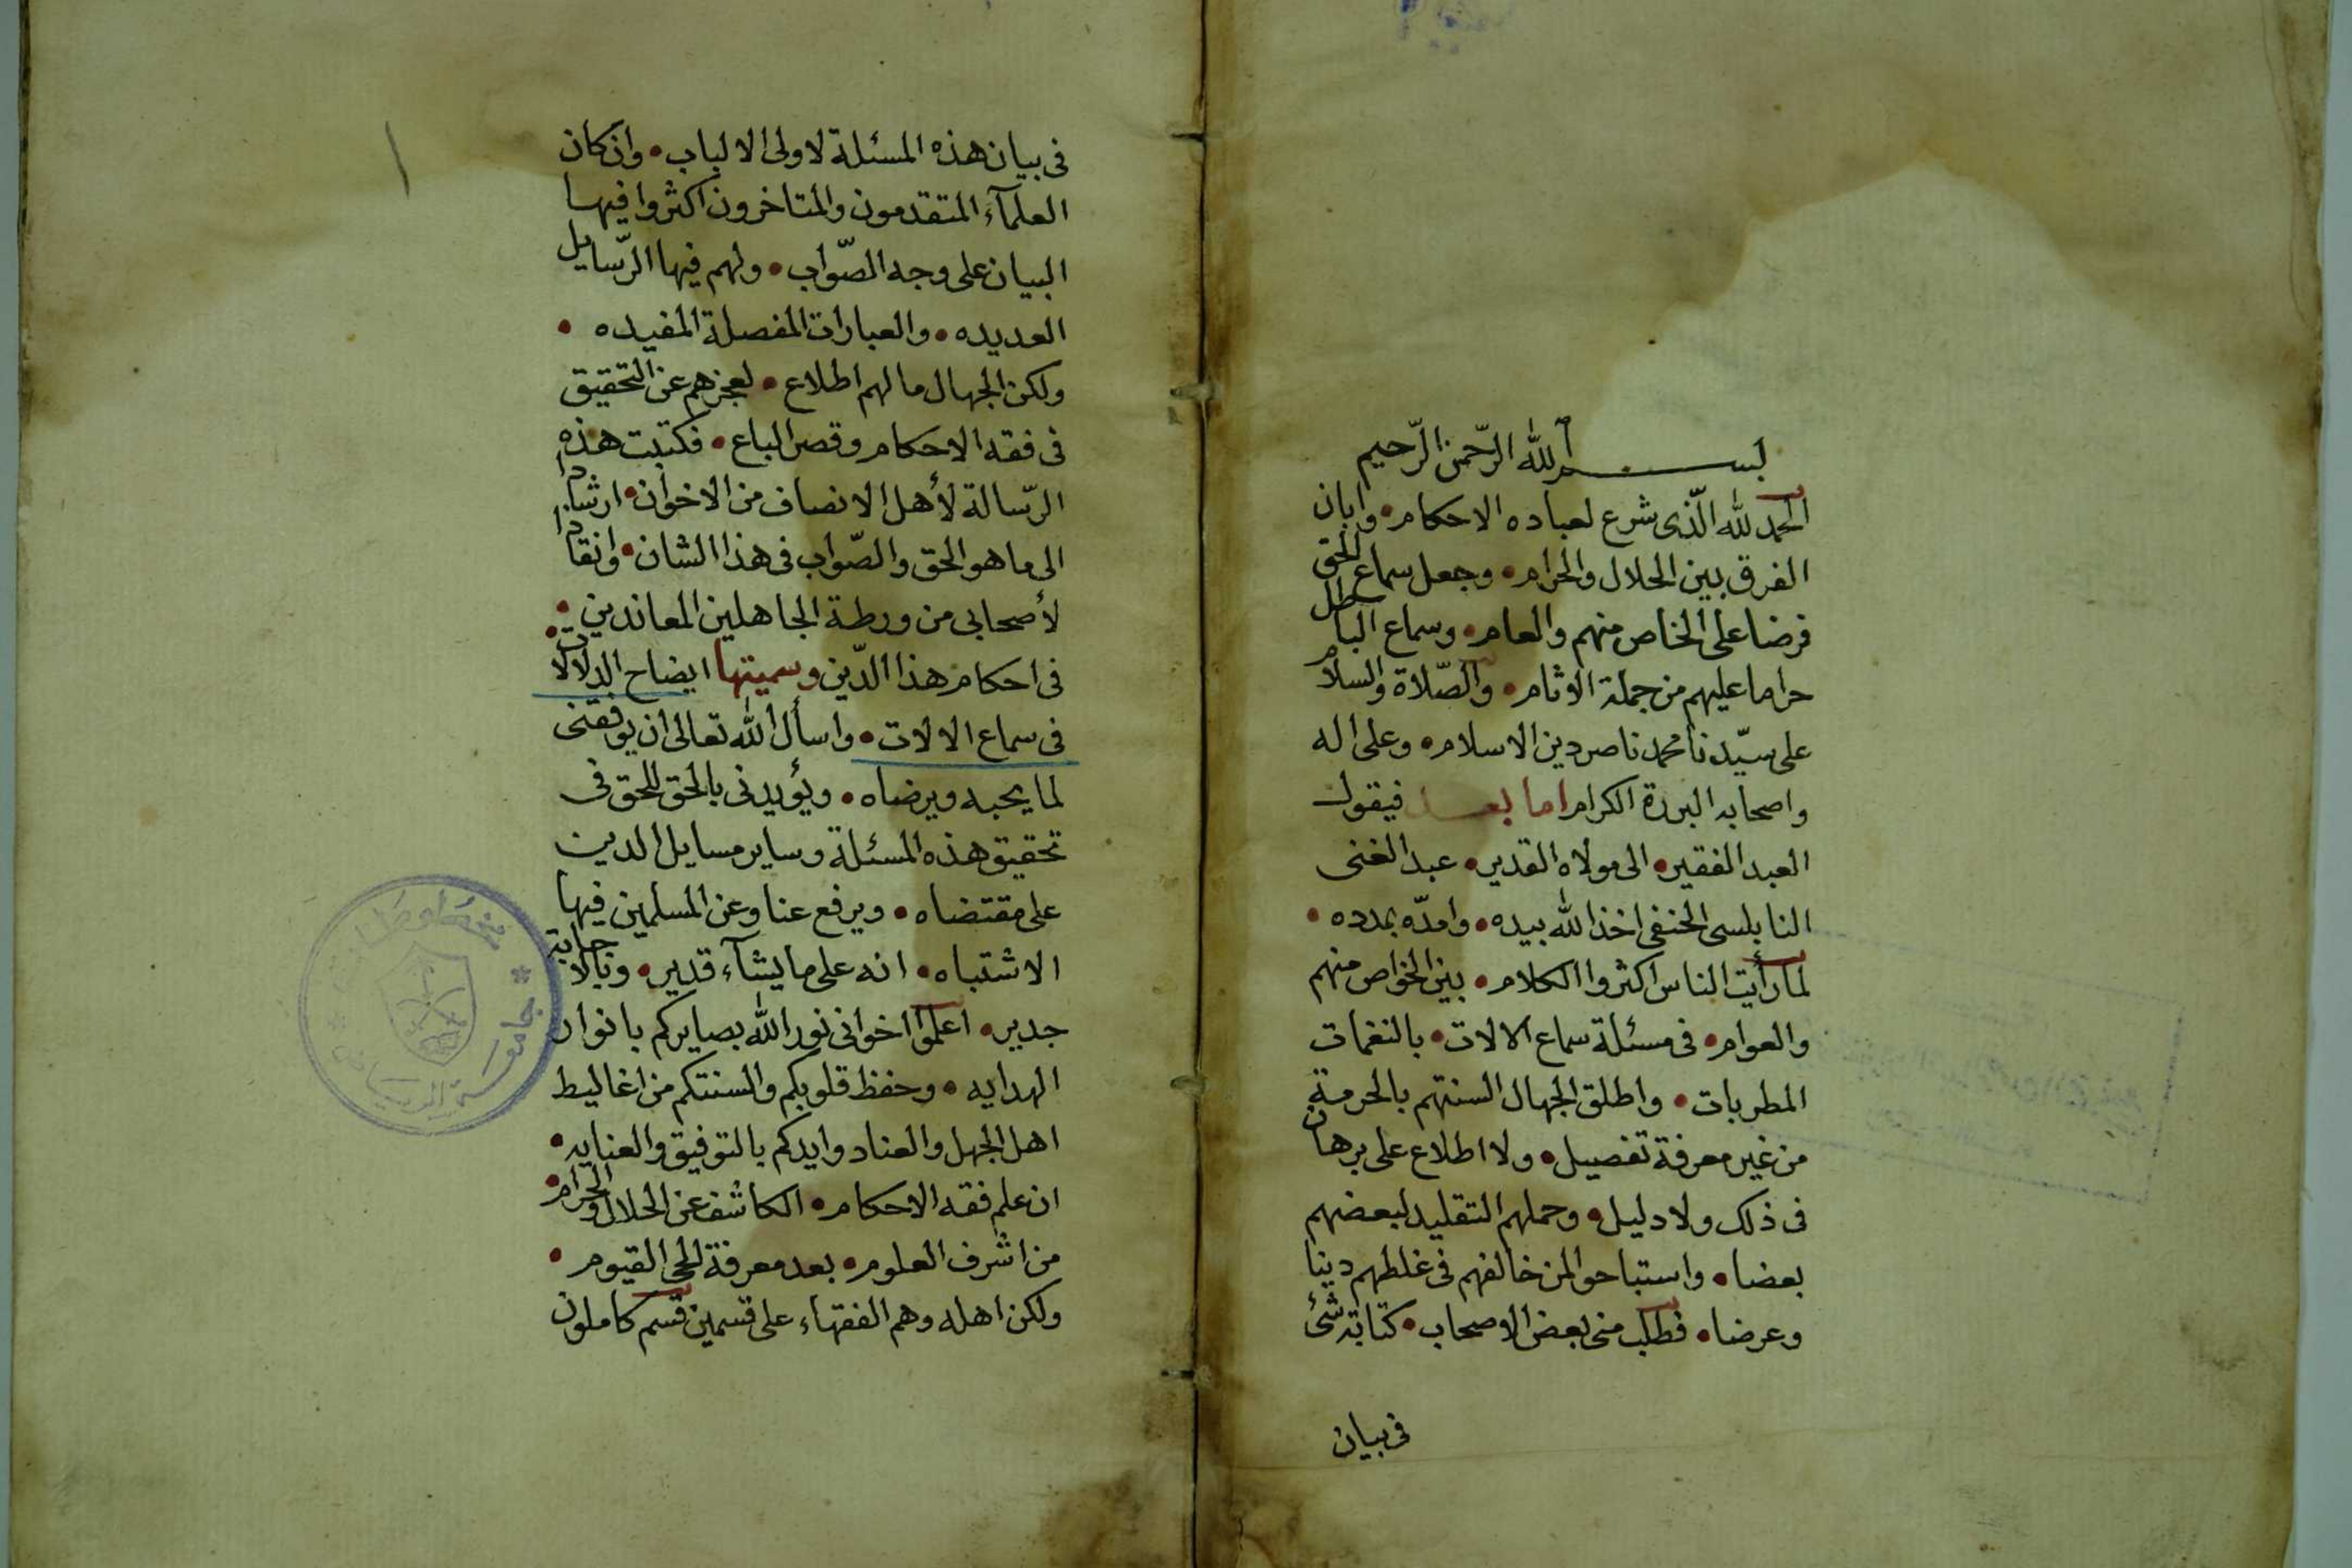 بسم الله الرّحمن الرّحيم
الحمد لله الّذى شرع لعباده الاحكام • وابان
الفرق بين الحلال والحرام • وجعل سماع الحق
فرضا على الخاص منهم والعام • وسماع الباطل
حراما عليهم من جملة الاثام • والصّلاة والسلام
على سيّدنا محمد ناصر دين الاسلام • وعلى اله
واصحابه البررة الكرام اما بعد فيقول
العبد الفقير • الى مولاه القدير • عبد الغنى
النابلسى الحنفى اخذ الله بيده • وامدّه بمدده •
لما رأيت الناس اكثروا الكلام • بين الخواص منهم
والعوام • فى مسئلة سماع الالات • بالنغمات
المطربات • واطلق الجهال السنتهم بالحرمة
من غير معرفة تفصيل • ولا اطلاع على برهان
فى ذلك ولا دليل • وحملهم التقليد لبعضهم
بعضا • واستباحوا لمن خالفهم فى غلطهم دينا
وعرضا • فطلب منى بعض الاصحاب • كتابة شئ
فى بيان
فى بيان هذه المسئلة لاولى الالباب • وان كان
العلمآء المتقدمون والمتاخرون اكثروا فيها
البيان على وجه الصّواب • ولهم فيها الرّسايل
العديده • والعبارات المفصلة المفيده •
ولكن الجهال ما لهم اطلاع • لعجزهم عن التحقيق
فى فقه الاحكام وقصر الباع • فكتبت هذه
الرّسالة لأهل الانصاف من الاخوان • ارشادا
الى ما هو الحق والصّواب فى هذا الشان • وانقاذا
لأصحابى من ورطة الجاهلين المعاندين •
فى احكام هذا الدّين وسميتها ايضاح الدلالات •
فى سماع الالات • واسأل الله تعالى ان يوفقنى
لما يحبه ويرضاه • ويؤيدنى بالحق للحق فى
تحقيق هذه المسئلة وساير مسايل الدين
على مقتضاه • ويرفع عنا وعن المسلمين فيها
الاشتباه • انه على ما يشآء قدير • وبالاجابة
جدير • اعلموا اخوانى نور الله بصايركم بانوار
الهدايه • وحفظ قلوبكم والسنتكم من اغاليط
اهل الجهل والعناد وايدكم بالتوفيق والعنايه •
ان علم فقه الاحكام • الكاشف عن الحلال والحرام •
من اشرف العلوم • بعد معرفة الحى القيوم •
ولكن اهله وهم الفقهاء على قسمين قسم كاملون